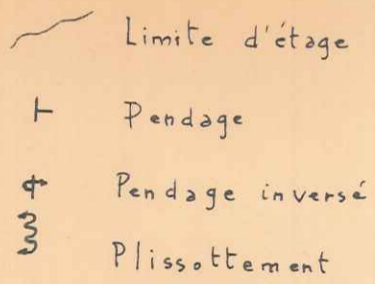 Limite d'étage
Pendage
Pendage inversé
Plissottement